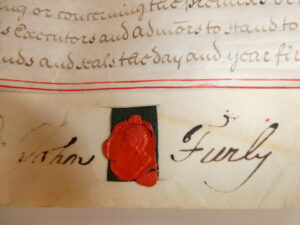 ing or concerning the premises or
s Executors and admors to stand to
nds and seals the day and year fir
John Furly